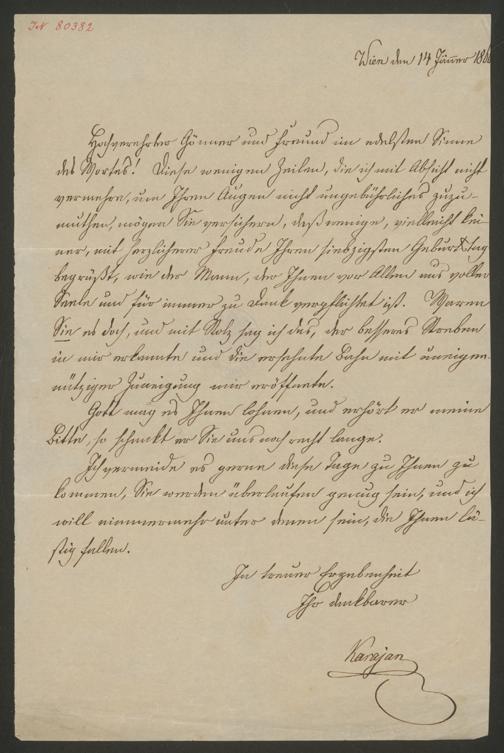 IN 80382
Wien den 14 Jänner 186
Hochverehrter Gönner und Freund im edelsten Sinne
des Wortes! Diese wenigen Zeilen, die ich mit Absicht nicht
vermehre, um Ihren Augen nicht ungebührliches zuzu-
muthen, mögen Sie versichern, daß wenige, vielleicht kei-
ner, mit herzlicherer Freude Ihren siebzigsten Geburtstag
begrüßt, wie der Mann, der Ihnen vor Allen aus voller
Seele und für immer zu Dank verpflichtet ist. Waren
Sie es doch, und mit Stolz sag ich das, der besseres Streben
in mir erkannte und die ersehnte Bahn mit uneigen-
nütziger Zuneigung mir eröffnete.
Gott mag es Ihnen lohnen, und erhört er meine
Bitte, so schenkt er Sie uns noch recht lange.
Ich vermeide es gerne diese Tage zu Ihnen zu
kommen, Sie werden überlaufen genug sein, und ich
will nimmermehr unter denen sein, die Ihnen lä-
stig fallen.
In treuer Ergebenheit
Ihr dankbarer
Karajan